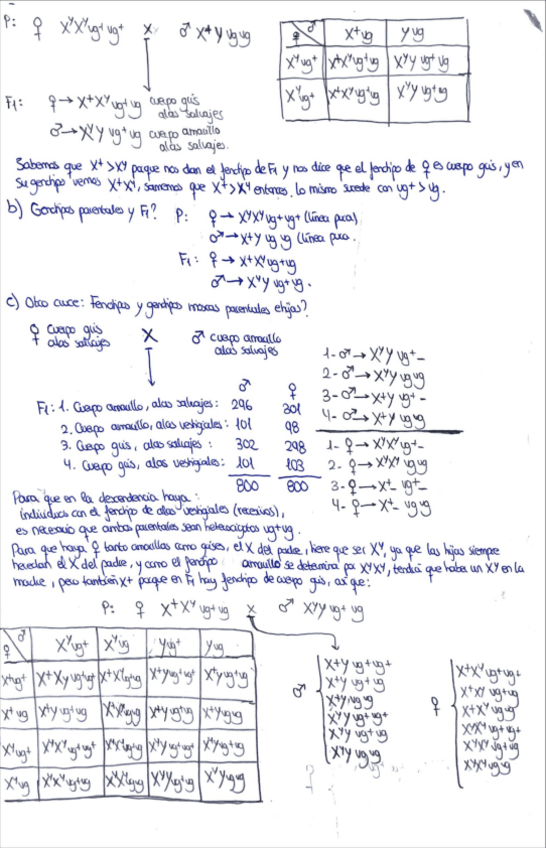 P: ♀ XʸXʸvg⁺vg⁺ x ♂ X⁺Y vgvg
♀ ♂ X⁺vg Yvg
Xʸvg⁺ X⁺Xʸvg⁺vg XʸY vg⁺vg
Xʸvg⁺ X⁺Xʸvg⁺vg XʸY vg⁺vg
F₁: ♀ → X⁺Xʸvg⁺vg cuerpo gris
alas salvajes
♂ → XʸY vg⁺vg cuerpo amarillo
alas salvajes.
Sabemos que X⁺ > Xʸ porque nos dan el fenotipo de F₁ y nos dice que el fenotipo de ♀ es cuerpo gris, y en
su genotipo vemos X⁺Xʸ, sabremos que X⁺ > Xʸ entonces. Lo mismo sucede con vg⁺ > vg.
b) Genotipos parentales y F₁? P: ♀ → XʸXʸvg⁺vg⁺ (línea pura)
♂ → X⁺Y vg vg (línea pura.
F₁: ♀ → X⁺Xʸvg⁺vg
♂ → XʸY vg⁺vg.
c) Otro cruce: Fenotipos y genotipos moscas parentales e hijas?
♀ cuerpo gris
alas salvajes
X
♂ cuerpo amarillo
alas salvajes
♂ ♀
F₁: 1. Cuerpo amarillo, alas salvajes: 296 301
2. Cuerpo amarillo, alas vestigiales: 101 98
3. Cuerpo gris, alas salvajes: 302 298
4. Cuerpo gris, alas vestigiales: 101 103
800 800
1- ♂ → XʸY vg⁺-
2- ♂ → XʸY vgvg
3- ♂ → X⁺Y vg⁺-
4- ♂ → X⁺Y vgvg
1- ♀ → XʸXʸvg⁺-
2- ♀ → XʸXʸ vgvg
3- ♀ → X⁺- vg⁺-
4- ♀ → X⁺- vgvg
Para que en la descendencia haya:
individuos con el fenotipo de alas vestigiales (recesivos),
es necesario que ambos parentales sean heterocigotos vg⁺vg.
Para que haya ♀ tanto amarillas como grises, el X del padre, tiene que ser Xʸ, ya que las hijas siempre
heredan el X del padre, y como el fenotipo amarillo se determina por XʸXʸ, tendrá que haber un Xʸ en la
madre, pero también X⁺ porque en F₁ hay fenotipo de cuerpo gris, así que:
P: ♀ X⁺Xʸ vg⁺vg x ♂ XʸY vg⁺vg
♀ ♂ Xʸvg⁺ Xʸvg Yvg⁺ Yvg
X⁺vg⁺ X⁺Xʸvg⁺vg⁺ X⁺Xʸvg⁺vg X⁺Yvg⁺vg⁺ X⁺Yvg⁺vg
X⁺vg X⁺Xʸvg⁺vg X⁺Xʸvgvg X⁺Yvg⁺vg X⁺Yvgvg
Xʸvg⁺ XʸXʸvg⁺vg⁺ XʸXʸvg⁺vg XʸYvg⁺vg⁺ XʸYvg⁺vg
Xʸvg XʸXʸvg⁺vg XʸXʸvgvg XʸYvg⁺vg XʸYvgvg
♂
X⁺Y vg⁺vg⁺
X⁺Y vg⁺vg
X⁺Y vgvg
XʸY vg⁺vg⁺
XʸY vg⁺vg
XʸY vgvg
♀
X⁺Xʸvg⁺vg⁺
X⁺Xʸ vg⁺vg
X⁺Xʸ vgvg
XʸXʸvg⁺vg⁺
XʸXʸvg⁺vg
XʸXʸvgvg